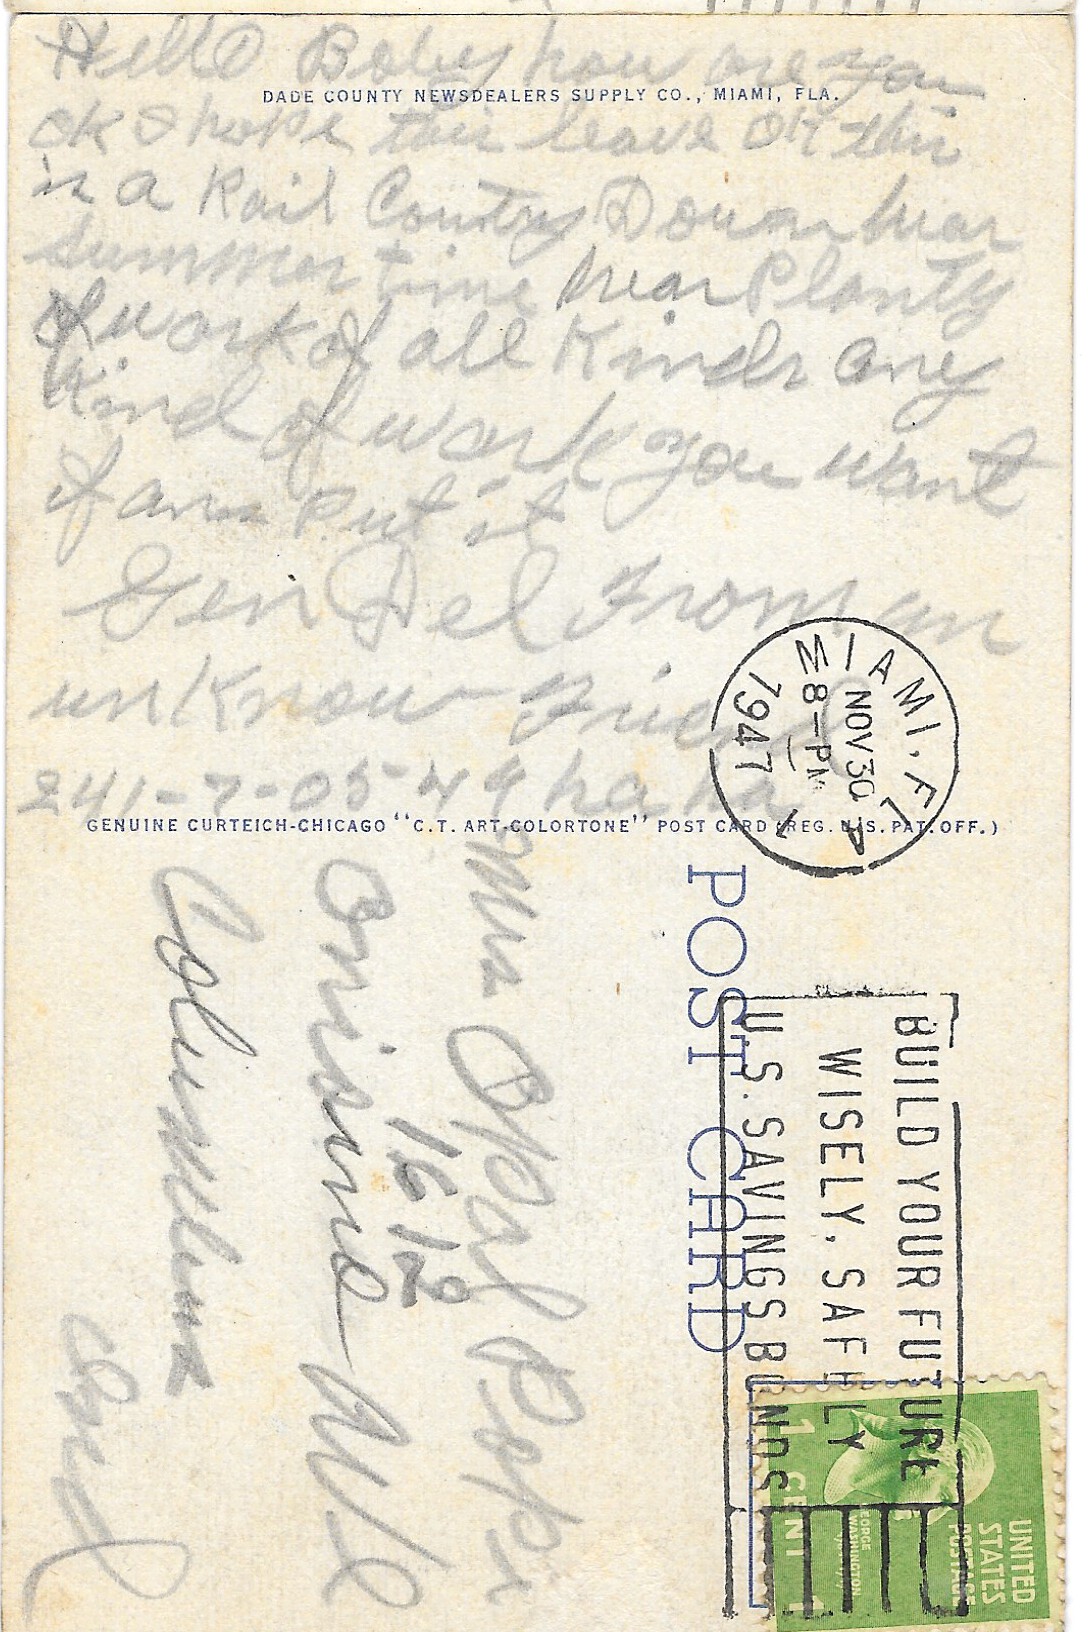 Hello Baby how are you
DADE COUNTY NEWSDEALERS SUPPLY CO., MIAMI, FLA.
ok I hope this leave ok this
is a Rail Country Down hear
summer time hear Planty
of work of all Kinds any
kind of work you want
if ans put it
Gen Del From an
unknow Friend
241-7-05-44 ha ha
GENUINE CURTEICH-CHICAGO "C.T. ART-COLORTONE" POST CARD (REG. U.S. PAT. OFF.)
MIAMI, FLA
NOV 30
8-PM
1947
1
POST CARD
BUILD YOUR FUTURE
WISELY, SAFELY
U.S. SAVINGS BONDS
UNITED
STATES
POSTAGE
GEORGE
WASHINGTON
1 CENT 1
Mrs Opal
1612
Ave
Columbus
Ind